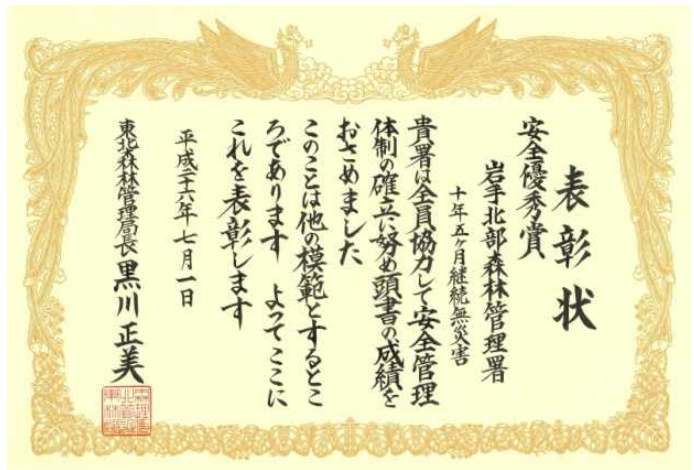 表彰状
安全優秀賞
岩手北部森林管理署
十年五ヶ月継続無災害
貴署は全員協力して安全管理
体制の確立に努め頭書の成績を
おさめました
このことは他の模範とするとこ
ろであります よってここに
これを表彰します
平成二十六年七月一日
東北森林管理局長 黒川正美